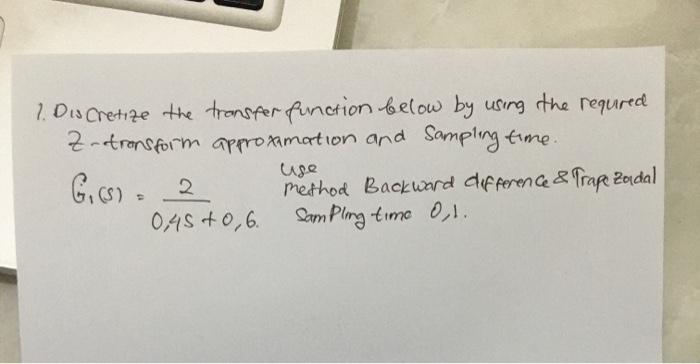 1. Discretize the transfer function below by using the required
Z-transform approxamation and Sampling time.
G₁(s) = 2 / 0,4s + 0,6.
use
method Backward difference & Trapezoidal
Sampling time 0,1.